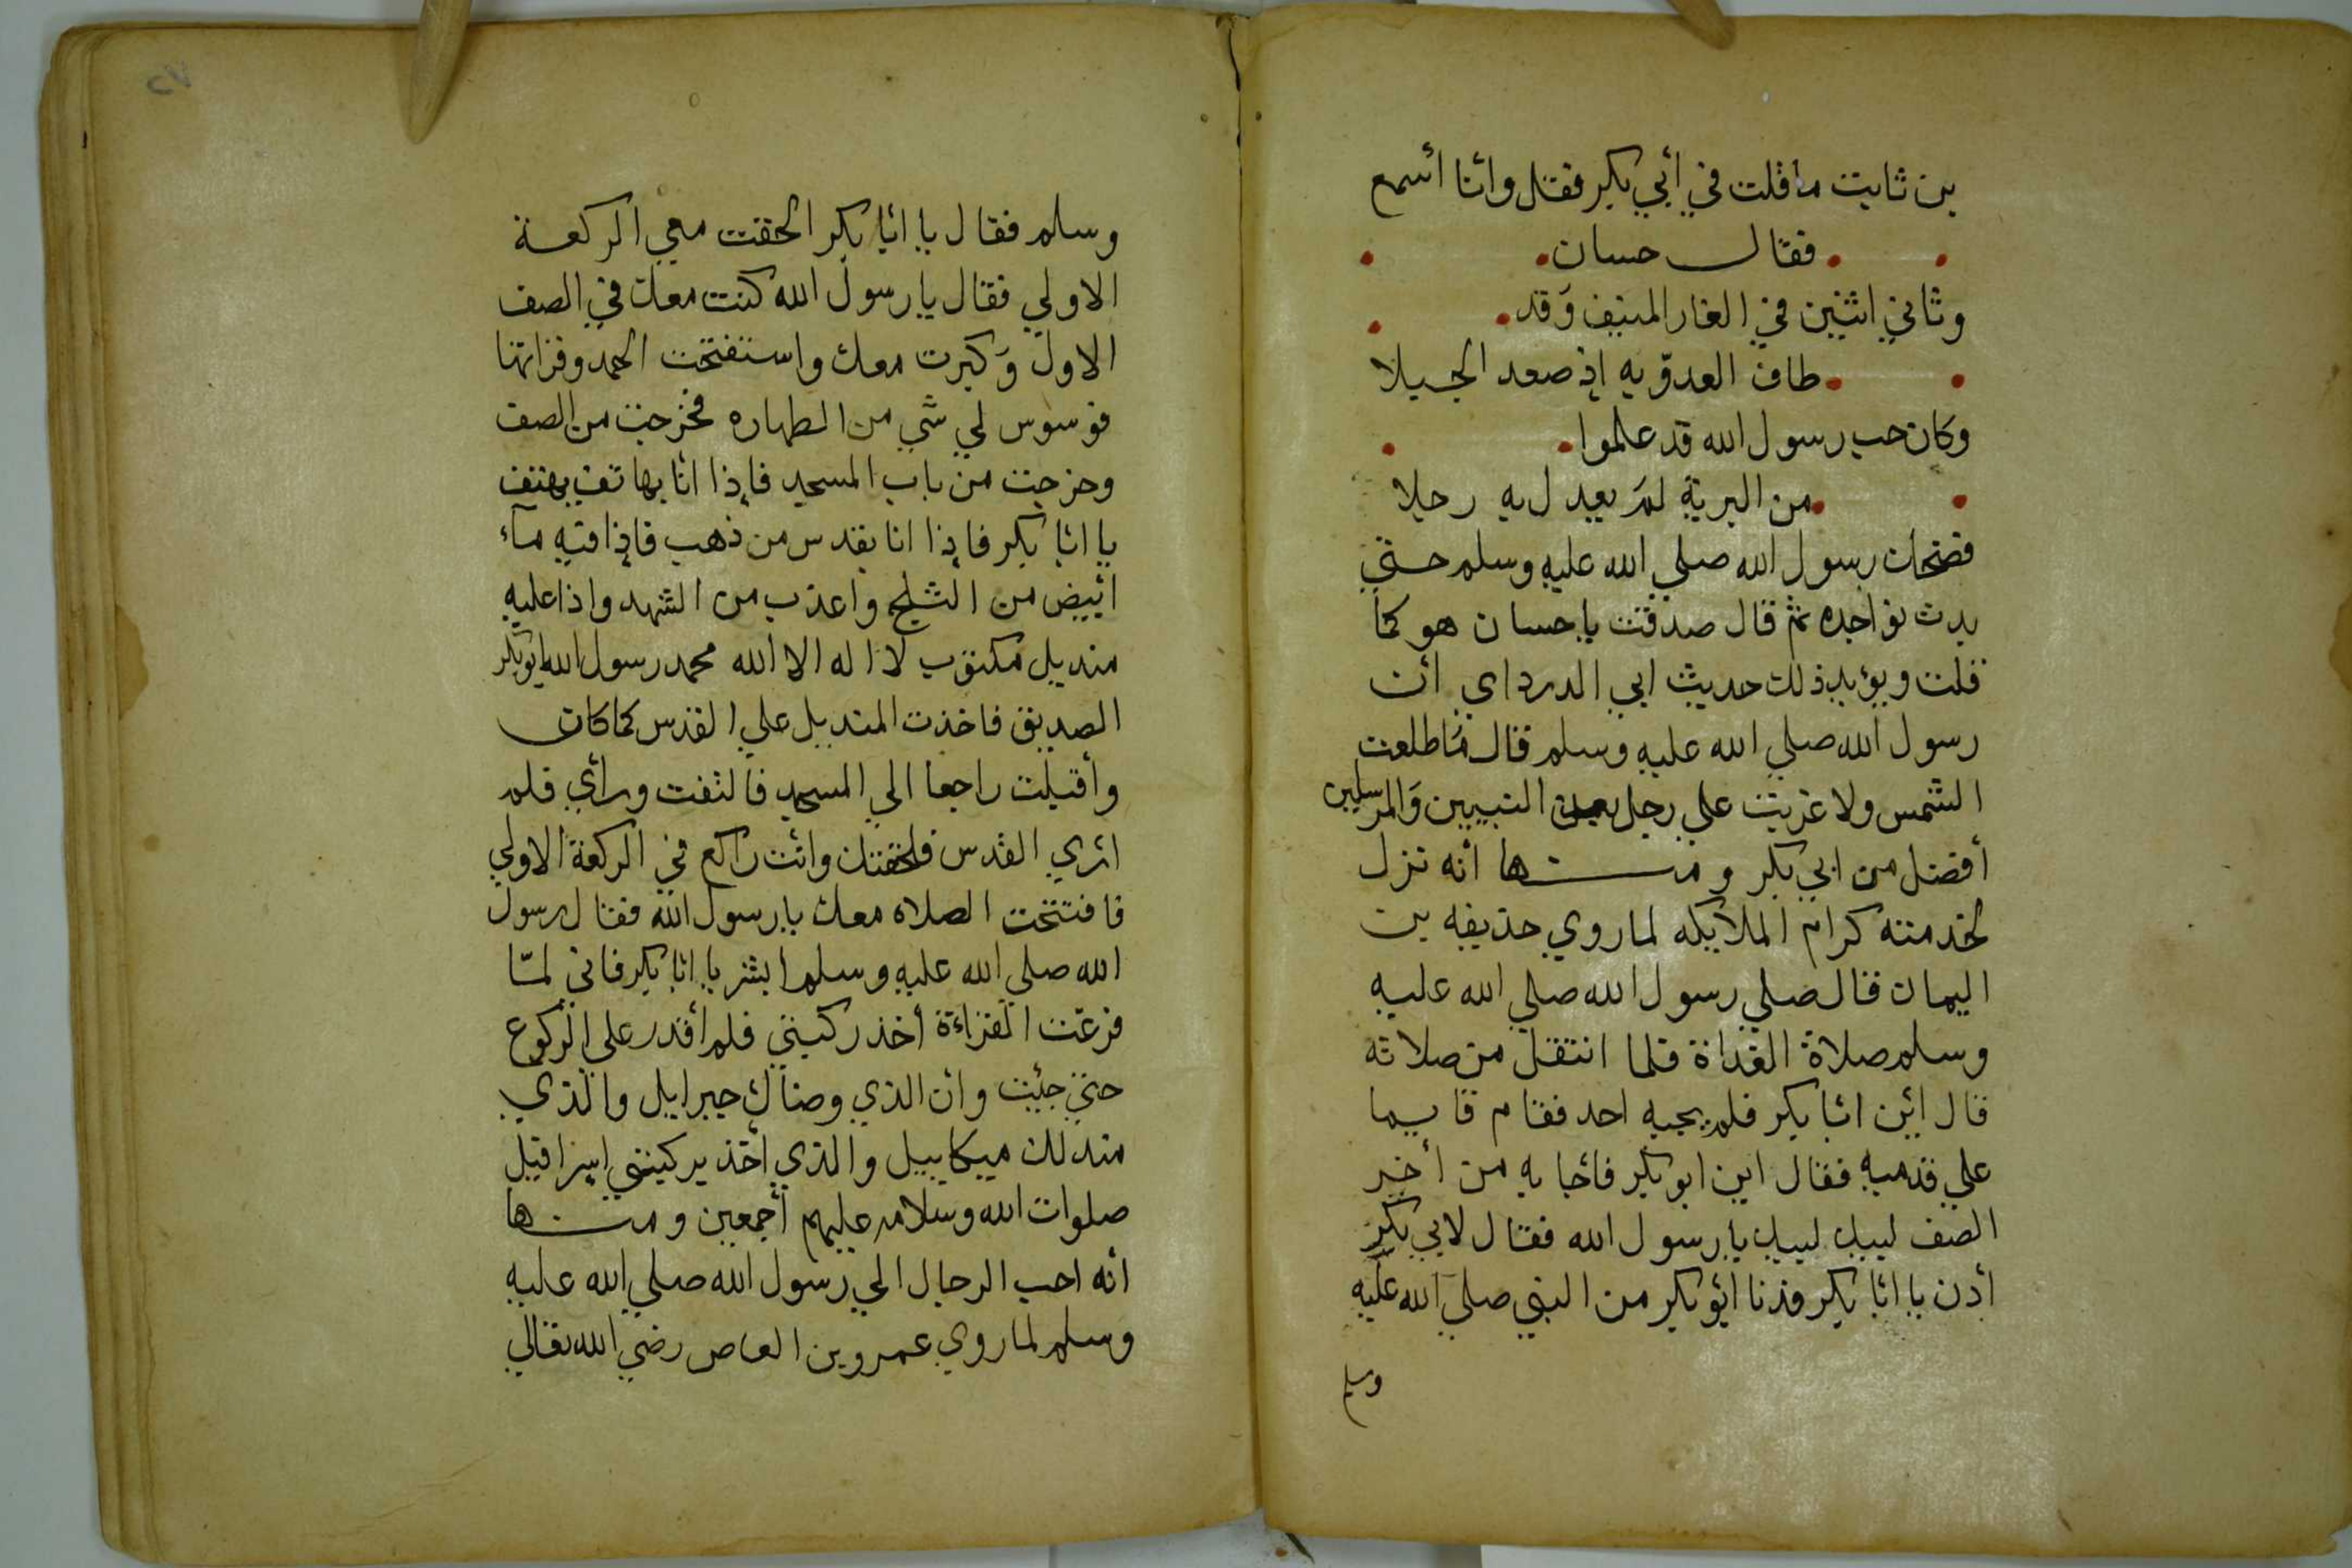 بن ثابت ما قلت في أبي بكر فقل وانا أسمع
فقال حسان
وثاني اثنين في الغار المنيف وَقد
طاف العدوّ به إذ صعد الجبلا
وكان حب رسول الله قد علموا
من البرية لمَ يعدل به رجلا
فضحك رسول الله صلي الله عليه وسلم حتي
بدت نواجده ثم قال صدقت يا حسان هو كما
قلت ويؤيد ذلك حديث ابي الدرداي أن
رسول الله صلي الله عليه وسلم قال مَا طلعت
الشمس ولا غربت علي رجل بعد النبيين وَالمرسلين
أفضل من ابي بكر ومنها أنه تزل
لخدمته كرام الملايكه لما روي حذيفه بن
اليمان قال صلي رسول الله صلي الله عليه
وسلم صلاة الغداة فلما انتقل من صلاته
قال أين ابا بكر فلم يجبه احد فقام قايما
علي قدميه فقال اين ابو بكر فأجابه من أخر
الصف لبيك لبيك يا رسول الله فقال لابي بكر
أدن يا ابا بكر فدنا أبو بكر من النبي صلي الله عليه
وسلم
٧٥
وسلم فقال يا ابا بكر الحقت معي الركعة
الاولي فقال يا رسول الله كنت معك في الصف
الاول وَكبرت معك واستفتحت الحمد وقراتها
فوسوس لي شي من الطهاره فخرجت من الصف
وخرجت من باب المسجد فإذا انا بهاتف يهتف
يا ابا بكر فإذا انا بقدس من ذهب فإذا فيه مآء
أبيض من الثلج واعذب من الشهد واذا عليه
منديل مكتوب لا اله الا الله محمد رسول الله ابو بكر
الصديق فاخذت المنديل علي القدس كما كان
وأقبلت راجعا الي المسجد فالتفت وراي فلم
اري القدس فلحقتك وانت راكع في الركعة الاولي
فافتتحت الصلاه معك يا رسول الله فقال رسول
الله صلي الله عليه وسلم ابشر يا ابا بكر فاني لمّا
فرغت القراءة أخذ ركبتي فلم أقدر علي الركوع
حتي جئت وان الذي وضاك جبرايل والذي
مندلك ميكاييل والذي اخذ بركبتي إسرافيل
صلوات الله وسلامه عليهم أجمعين ومنها
انه احب الرجال الي رسول الله صلي الله عليه
وسلم لما روي عمرو بن العاص رضي الله تعالي